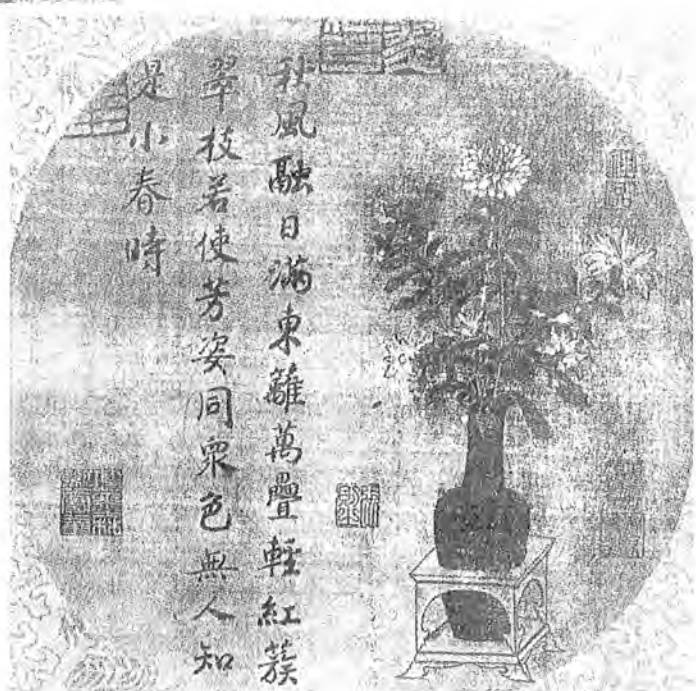 秋風融日滿東籬萬疊輕紅蔟
翠枝若使芳姿同衆色無人知
是小春時